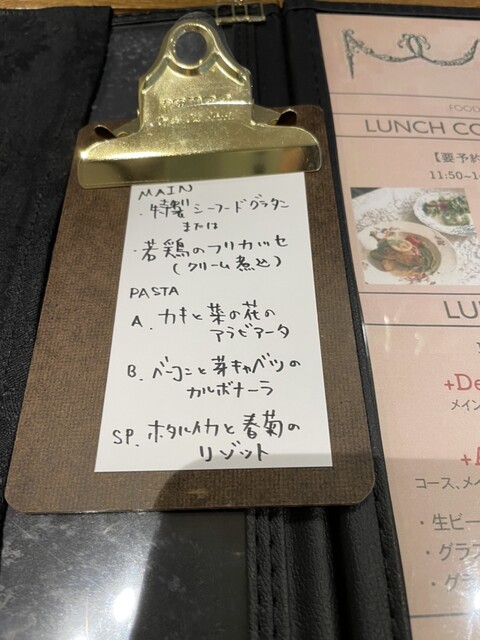 MAIN
・特製シーフードグラタン
または
・若鶏のフリカッセ
(クリーム煮込)
PASTA
A. カキと菜の花の
アラビアータ
B. ベーコンと芽キャベツの
カルボナーラ
SP. ホタルイカと春菊の
リゾット
FOOD
LUNCH CO
【要予約
11:50~1
LU
+De
メイン
+A
コース、メイ
・生ビー
・グラフ
・グラ